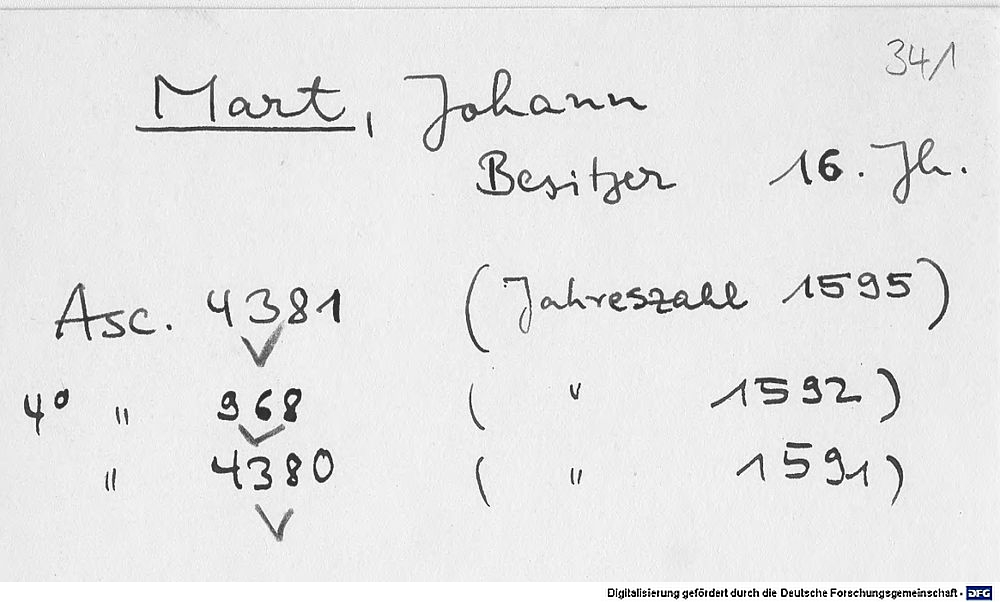 34/1
Mart, Johann
Besitzer 16. Jh.
Asc. 4381 (Jahreszahl 1595)
4° " 968 ( " 1592)
" 4380 ( " 1591)
Digitalisierung gefördert durch die Deutsche Forschungsgemeinschaft - DFG